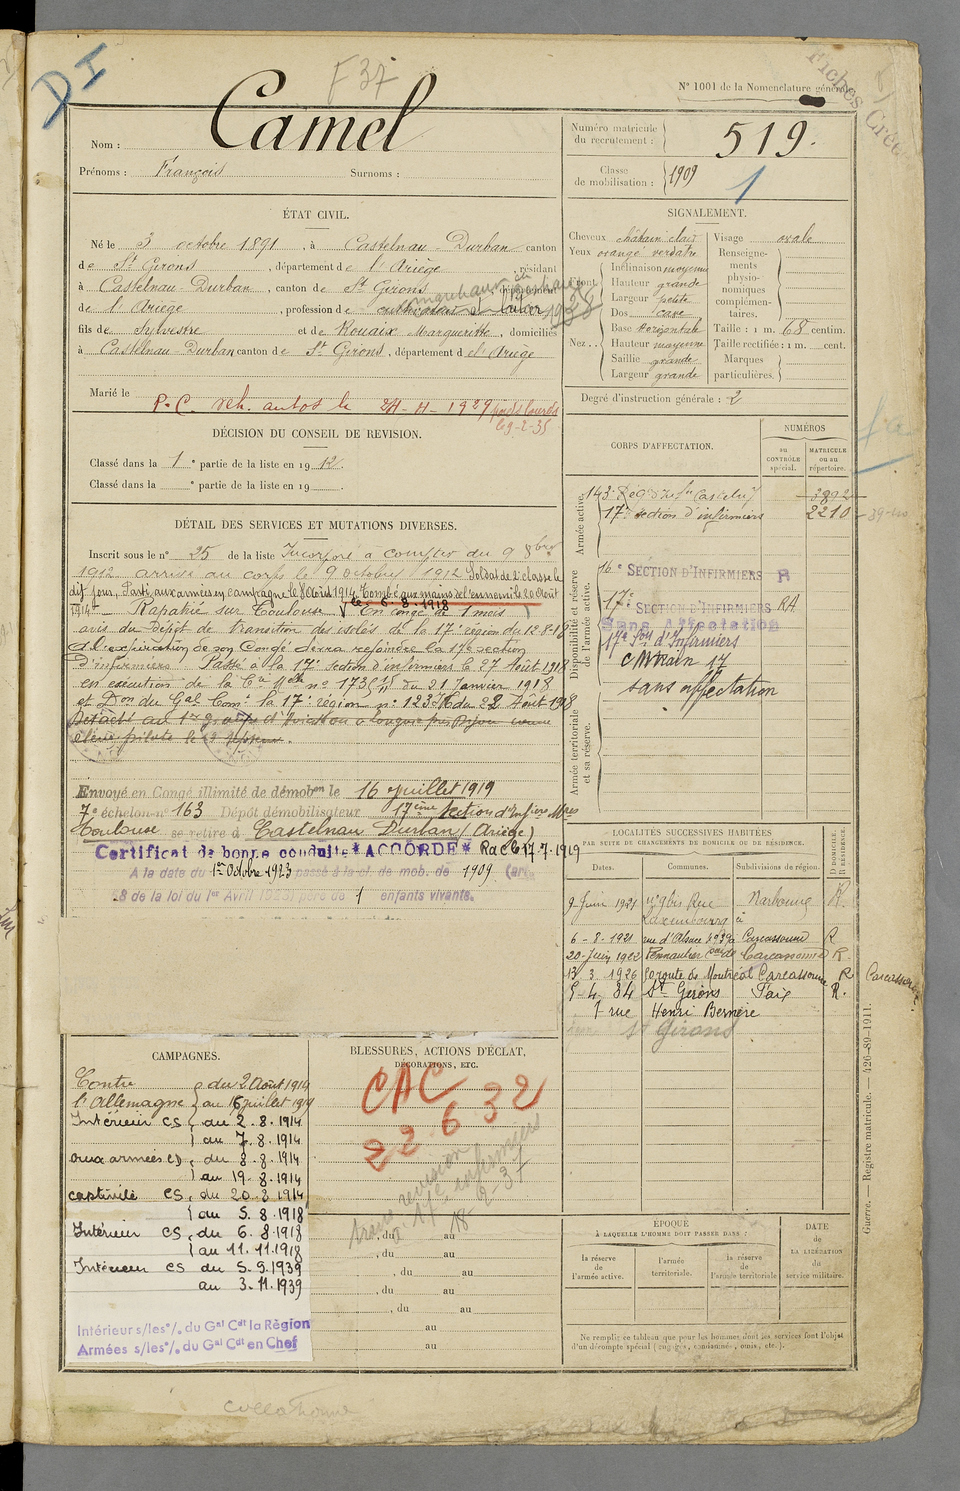 DI
F 37
N° 1001 de la Nomenclature générale.
Fiches Créé
Nom : Camel
Prénoms : François Surnoms :
Numéro matricule du recrutement : 519.
Classe de mobilisation : 1909
1
ÉTAT CIVIL.
Né le 3 octobre 1891, à Castelnau-Durban canton
de St Girons, département de l'Ariège, résidant
à Castelnau-Durban, canton de St Girons, département
de l'Ariège, profession de cultivateur
1938
fils de Sylvestre et de Rouaix Marguerite, domiciliés
à Castelnau-Durban canton de St Girons, département de l'Ariège
Marié le
P.C. veh. autos le 24-4-1929 poids lourds
le 9-2-35
SIGNALEMENT.
Cheveux châtain clair
Yeux orangé verdâtre
Front
Inclinaison moyenne
Hauteur grande
Largeur petite
Nez
Dos cave
Base horizontale
Hauteur moyenne
Saillie grande
Largeur grande
Visage ovale
Renseignements physionomiques complémentaires.
Taille : 1 m. 68 centim.
Taille rectifiée : 1 m. cent.
Marques particulières.
Degré d'instruction générale : 2
DÉCISION DU CONSEIL DE REVISION.
Classé dans la 1e partie de la liste en 1912.
Classé dans la e partie de la liste en 19
DÉTAIL DES SERVICES ET MUTATIONS DIVERSES.
Inscrit sous le n° 25 de la liste Incorporé à compter du 9 8bre
1912 arrivé au corps le 9 octobre 1912 Soldat de 2e classe le
dit jour. Parti aux armées en campagne le 8 Août 1914 Tombé aux mains de l'ennemi le 20 Août
1914 - Rapatrié sur Toulouse le 6.8.1918 En congé de 1 mois
avis du Dépôt de transition des isolés de la 17e région du 12-8-18
à l'expiration de son Congé devra rejoindre la 17e section
d'infirmiers Passé à la 17e section d'infirmiers le 27 Août 1918
en exécution de la Cre Mlle n° 1735 du 21 Janvier 1918
et Don du Gal Comt la 17e région n° 123 du 22 Août 1918
Détaché au 1er groupe d'aviation à Longvic près Dijon comme
élève pilote
Envoyé en Congé illimité de démobon le 16 juillet 1919
7e échelon n° 163 Dépôt démobilisateur 17ème Section d'Infirs Mres
Toulouse se retire à Castelnau Durban (Ariège)
Certificat de bonne conduite "ACCORDÉ" Rac le 17.7.1919
A la date du 1er Octobre 1923 passé à la cl. de mob. de 1909 (art.
58 de la loi du 1er Avril 1923) père de 1 enfants vivants.
CORPS D'AFFECTATION.
NUMÉROS
au CONTRÔLE spécial.
MATRICULE ou au répertoire.
Armée active.
143e Rég d'Infie Castelry 3892
17e section d'infirmiers 2210
Disponibilité et réserve de l'armée active.
16e SECTION D'INFIRMIERS R
17e SECTION D'INFIRMIERS RA
Sans Affectation
17e Son d'Infirmiers
C M Train 17
sans affectation
Armée territoriale et sa réserve.
LOCALITÉS SUCCESSIVES HABITÉES
PAR SUITE DE CHANGEMENTS DE DOMICILE OU DE RÉSIDENCE.
Dates. Communes. Subdivisions de région. D DOMICILE. R RÉSIDENCE.
9 Juin 1921 n° 9 bis Rue Luxembourg à Narbonne R.
6-8-1921 rue d'Alsace n° 39 à Carcassonne R
20-Juin 1922 Pennautier Carcassonne R.
13 3 1926 50 route de Montréal Carcassonne R Carcassonne
5-4 34 St Girons Foix R.
1 rue Henri Bernère
St Girons
Guerre. — Registre matricule. — 426-89-1911.
CAMPAGNES.
Contre l'Allemagne du 2 Août 1914
au 16 juillet 1919
Intérieur CS du 2.8.1914
au 7.8.1914
aux armées CD du 8.8.1914
au 19.8.1914
captivité CS du 20.8.1914
au 5.8.1918
Intérieur CS du 6.8.1918
au 11.11.1918
Intérieur CS du 5.9.1939
au 3.11.1939
Intérieur s/les o/. du Gal Cdt la Région
Armées s/les o/. du Gal Cdt en Chef
BLESSURES, ACTIONS D'ÉCLAT,
DÉCORATIONS, ETC.
CAC
22 6 32
revision
17e infirmiers
18-2-37
, du au
, du au
, du au
, du au
, du au
au
au
ÉPOQUE
À LAQUELLE L'HOMME DOIT PASSER DANS :
la réserve de l'armée active.
l'armée territoriale.
la réserve de l'armée territoriale
DATE de LA LIBÉRATION du service militaire.
Ne remplir ce tableau que pour les hommes dont les services font l'objet
d'un décompte spécial (engagés, condamnés, omis, etc.).